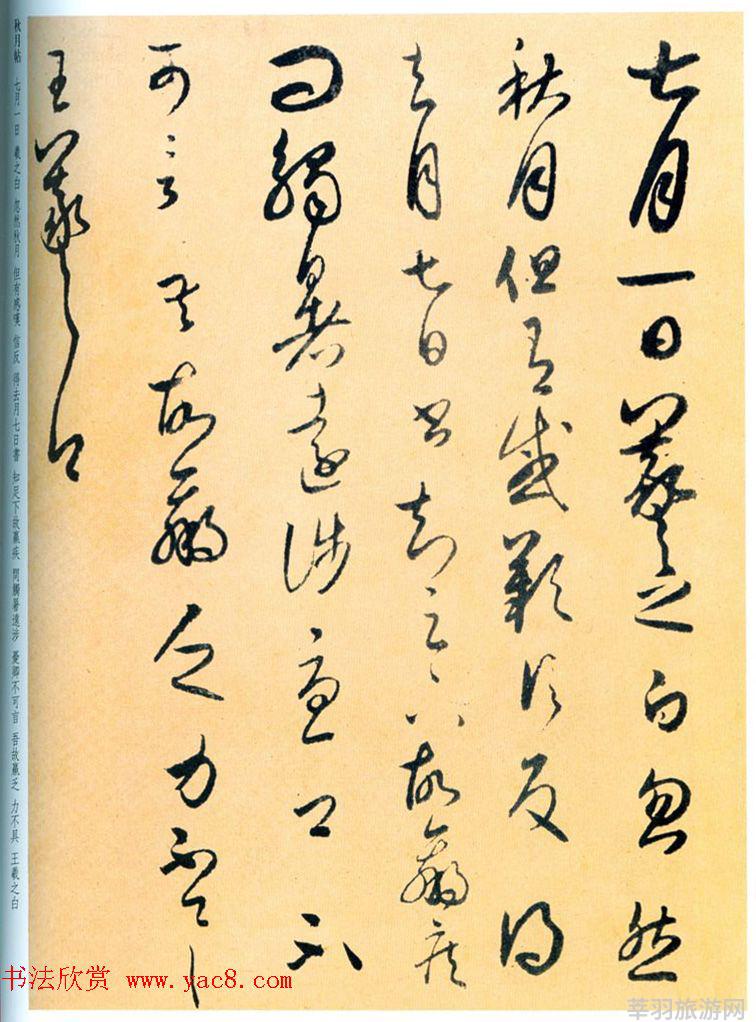 七月一日羲之白忽然
秋月但有感歎信反得
去月七日書知足下故羸疾
問觸暑遠涉憂卿不
可言吾故羸乏力不具
王羲之白
秋月帖 七月一日 羲之白 忽然秋月 但有感嘆 信反 得去月七日書 知足下故羸疾 問觸暑遠涉 憂卿不可言 吾故羸乏 力不具 王羲之白
书法欣赏 www.yac8.com
莘羽旅游网